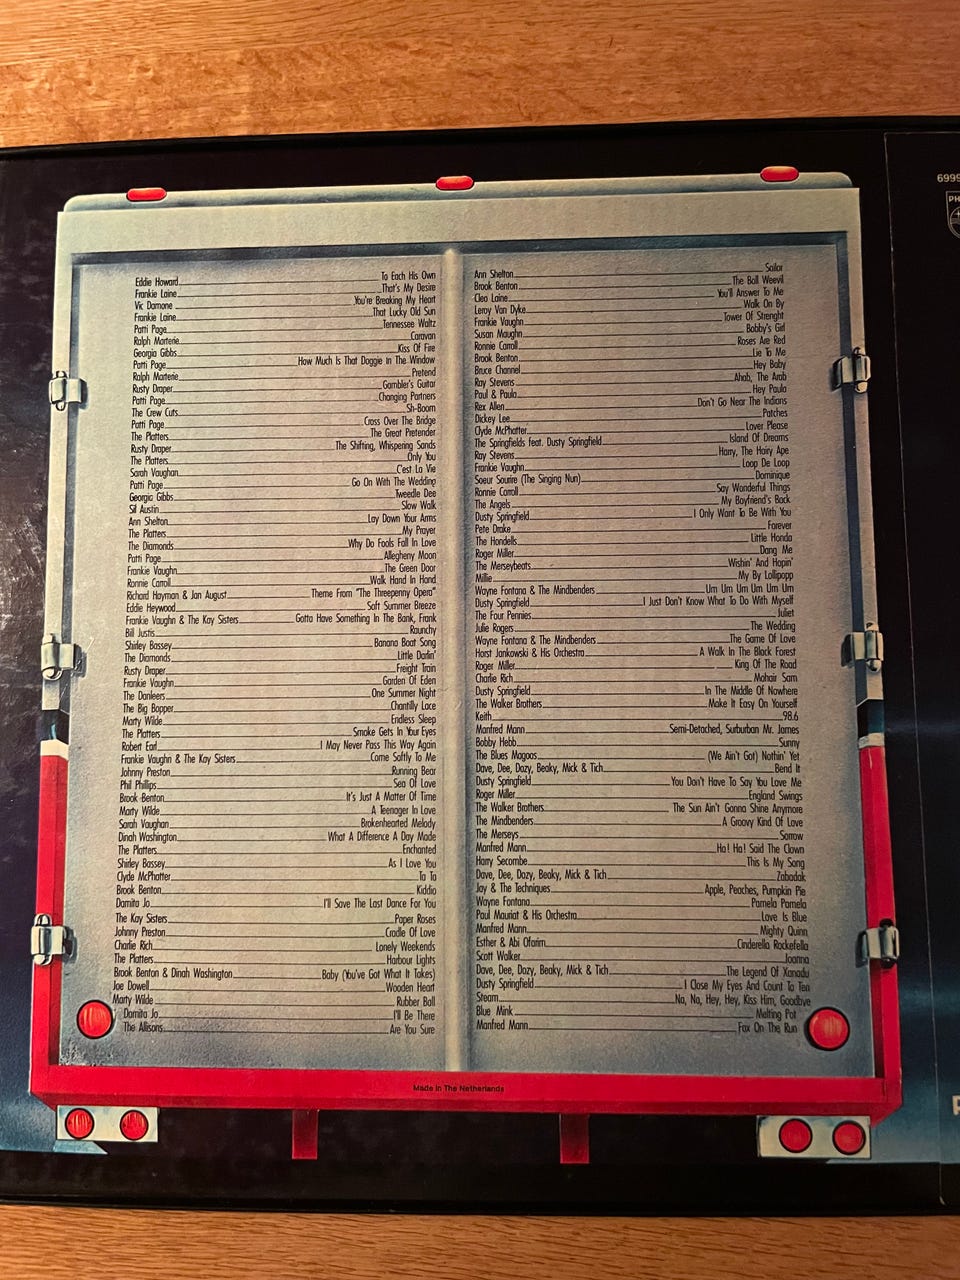 Eddie Howard To Each His Own
Frankie Laine That's My Desire
Vic Damone You're Breaking My Heart
Frankie Laine That Lucky Old Sun
Patti Page Tennessee Waltz
Ralph Marterie Caravan
Georgia Gibbs Kiss Of Fire
Patti Page How Much Is That Doggie In The Window
Ralph Marterie Pretend
Rusty Draper Gambler's Guitar
Patti Page Changing Partners
The Crew Cuts Sh-Boom
Patti Page Cross Over The Bridge
The Platters The Great Pretender
Rusty Draper The Shifting, Whispering Sands
The Platters Only You
Sarah Vaughan C'est La Vie
Patti Page Go On With The Wedding
Georgia Gibbs Tweedle Dee
Sil Austin Slow Walk
Ann Shelton Lay Down Your Arms
The Platters My Prayer
The Diamonds Why Do Fools Fall In Love
Patti Page Allegheny Moon
Frankie Vaughn The Green Door
Ronnie Carroll Walk Hand In Hand
Richard Hayman & Jan August Theme From "The Threepenny Opera"
Eddie Heywood Soft Summer Breeze
Frankie Vaughn & The Kay Sisters Gotta Have Something In The Bank, Frank
Bill Justis Raunchy
Shirley Bassey Banana Boat Song
The Diamonds Little Darlin'
Rusty Draper Freight Train
Frankie Vaughn Garden Of Eden
The Danleers One Summer Night
The Big Bopper Chantilly Lace
Marty Wilde Endless Sleep
The Platters Smoke Gets In Your Eyes
Robert Earl I May Never Pass This Way Again
Frankie Vaughn & The Kay Sisters Come Softly To Me
Johnny Preston Running Bear
Phil Phillips Sea Of Love
Brook Benton It's Just A Matter Of Time
Marty Wilde A Teenager In Love
Sarah Vaughan Brokenhearted Melody
Dinah Washington What A Difference A Day Made
The Platters Enchanted
Shirley Bassey As I Love You
Clyde McPhatter Ta Ta
Brook Benton Kiddio
Damita Jo I'll Save The Last Dance For You
The Kay Sisters Paper Roses
Johnny Preston Cradle Of Love
Charlie Rich Lonely Weekends
The Platters Harbour Lights
Brook Benton & Dinah Washington Baby (You've Got What It Takes)
Joe Dowell Wooden Heart
Marty Wilde Rubber Ball
Damita Jo I'll Be There
The Allisons Are You Sure
Ann Shelton Sailor
Brook Benton The Boll Weevil
Cleo Laine You'll Answer To Me
Leroy Van Dyke Walk On By
Frankie Vaughn Tower Of Strenght
Susan Maughn Bobby's Girl
Ronnie Carroll Roses Are Red
Brook Benton Lie To Me
Bruce Channel Hey Baby
Ray Stevens Ahab, The Arab
Paul & Paula Hey Paula
Rex Allen Don't Go Near The Indians
Dickey Lee Patches
Clyde McPhatter Lover Please
The Springfields feat. Dusty Springfield Island Of Dreams
Ray Stevens Harry, The Hairy Ape
Frankie Vaughn Loop De Loop
Soeur Sourire (The Singing Nun) Dominique
Ronnie Carroll Say Wonderful Things
The Angels My Boyfriend's Back
Dusty Springfield I Only Want To Be With You
Pete Drake Forever
The Hondells Little Honda
Roger Miller Dang Me
The Merseybeats Wishin' And Hopin'
Millie My By Lollipopp
Wayne Fontana & The Mindbenders Um Um Um Um Um Um
Dusty Springfield I Just Don't Know What To Do With Myself
The Four Pennies Juliet
Julie Rogers The Wedding
Wayne Fontana & The Mindbenders The Game Of Love
Horst Jankowski & His Orchestra A Walk In The Black Forest
Roger Miller King Of The Road
Charlie Rich Mohair Sam
Dusty Springfield In The Middle Of Nowhere
The Walker Brothers Make It Easy On Yourself
Keith 98.6
Manfred Mann Semi-Detached, Surburban Mr. James
Bobby Hebb Sunny
The Blues Magoos (We Ain't Got) Nothin' Yet
Dave, Dee, Dozy, Beaky, Mick & Tich Bend It
Dusty Springfield You Don't Have To Say You Love Me
Roger Miller England Swings
The Walker Brothers The Sun Ain't Gonna Shine Anymore
The Mindbenders A Groovy Kind Of Love
The Merseys Sorrow
Manfred Mann Ha! Ha! Said The Clown
Harry Secombe This Is My Song
Dave, Dee, Dozy, Beaky, Mick & Tich Zabadak
Jay & The Techniques Apple, Peaches, Pumpkin Pie
Wayne Fontana Pamela Pamela
Paul Mauriat & His Orchestra Love Is Blue
Manfred Mann Mighty Quinn
Esther & Abi Ofarim Cinderella Rockefella
Scott Walker Joanna
Dave, Dee, Dozy, Beaky, Mick & Tich The Legend Of Xanadu
Dusty Springfield I Close My Eyes And Count To Ten
Steam Na, Na, Hey, Hey, Kiss Him, Goodbye
Blue Mink Melting Pot
Manfred Mann Fox On The Run
Made in The Netherlands
6999
PH